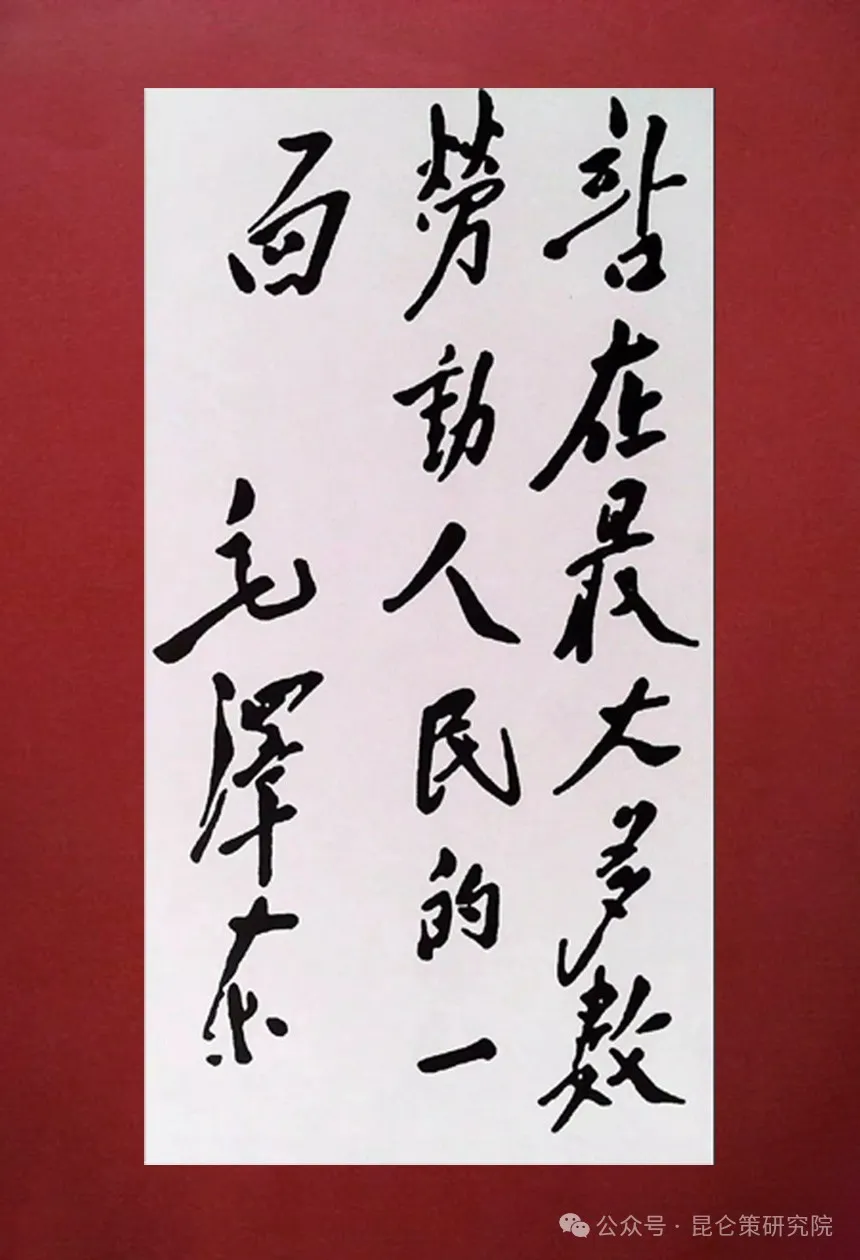 站在最大多數
勞動人民的一
面 毛澤东
公众号 · 昆仑策研究院